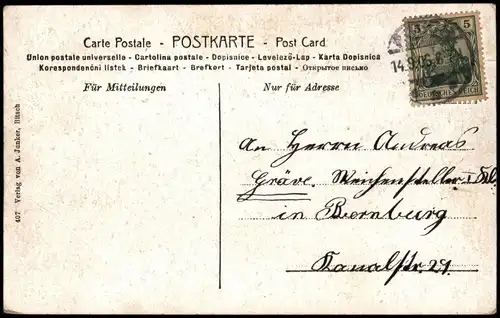 Carte Postale - POSTKARTE - Post Card
Union postale universelle - Cartolina postale - Dopisnice - Levelező-Lap - Karta Dopisnica
Korespondenční listek - Briefkaart - Brefkort - Tarjeta postal - Открытое письмо
Für Mitteilungen
Nur für Adresse
5 5
DEUTSCHES REICH
14.9.
An Herrn Andreas
Gräve. Weichensteller I. Kl.
in Bernburg
Kanalstr. 21.
407 Verlag von A. Junker, Bitsch